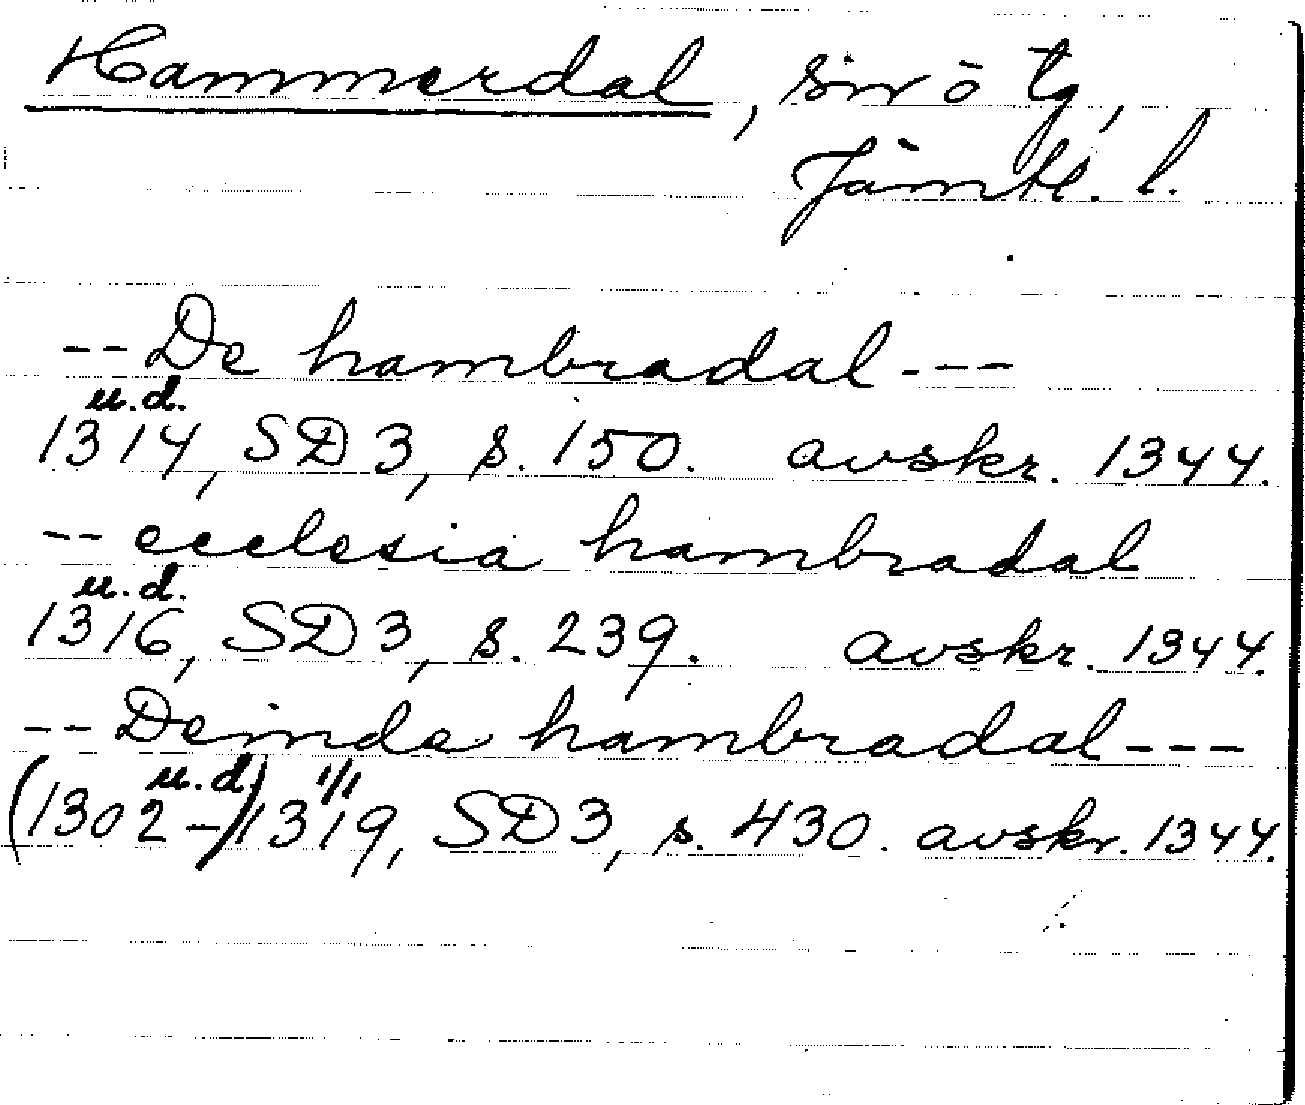 Hammerdal, sn o tg,
Jämtl. l.
-- De hambradal ---
u.d.
1314, SD 3, s. 150. avskr. 1344.
-- ecclesia hambradal
u.d.
1316, SD 3, s. 239. avskr. 1344.
-- Deinde hambradal ---
u.d. 1/1
(1302-)1319, SD 3, s. 430. avskr. 1344.